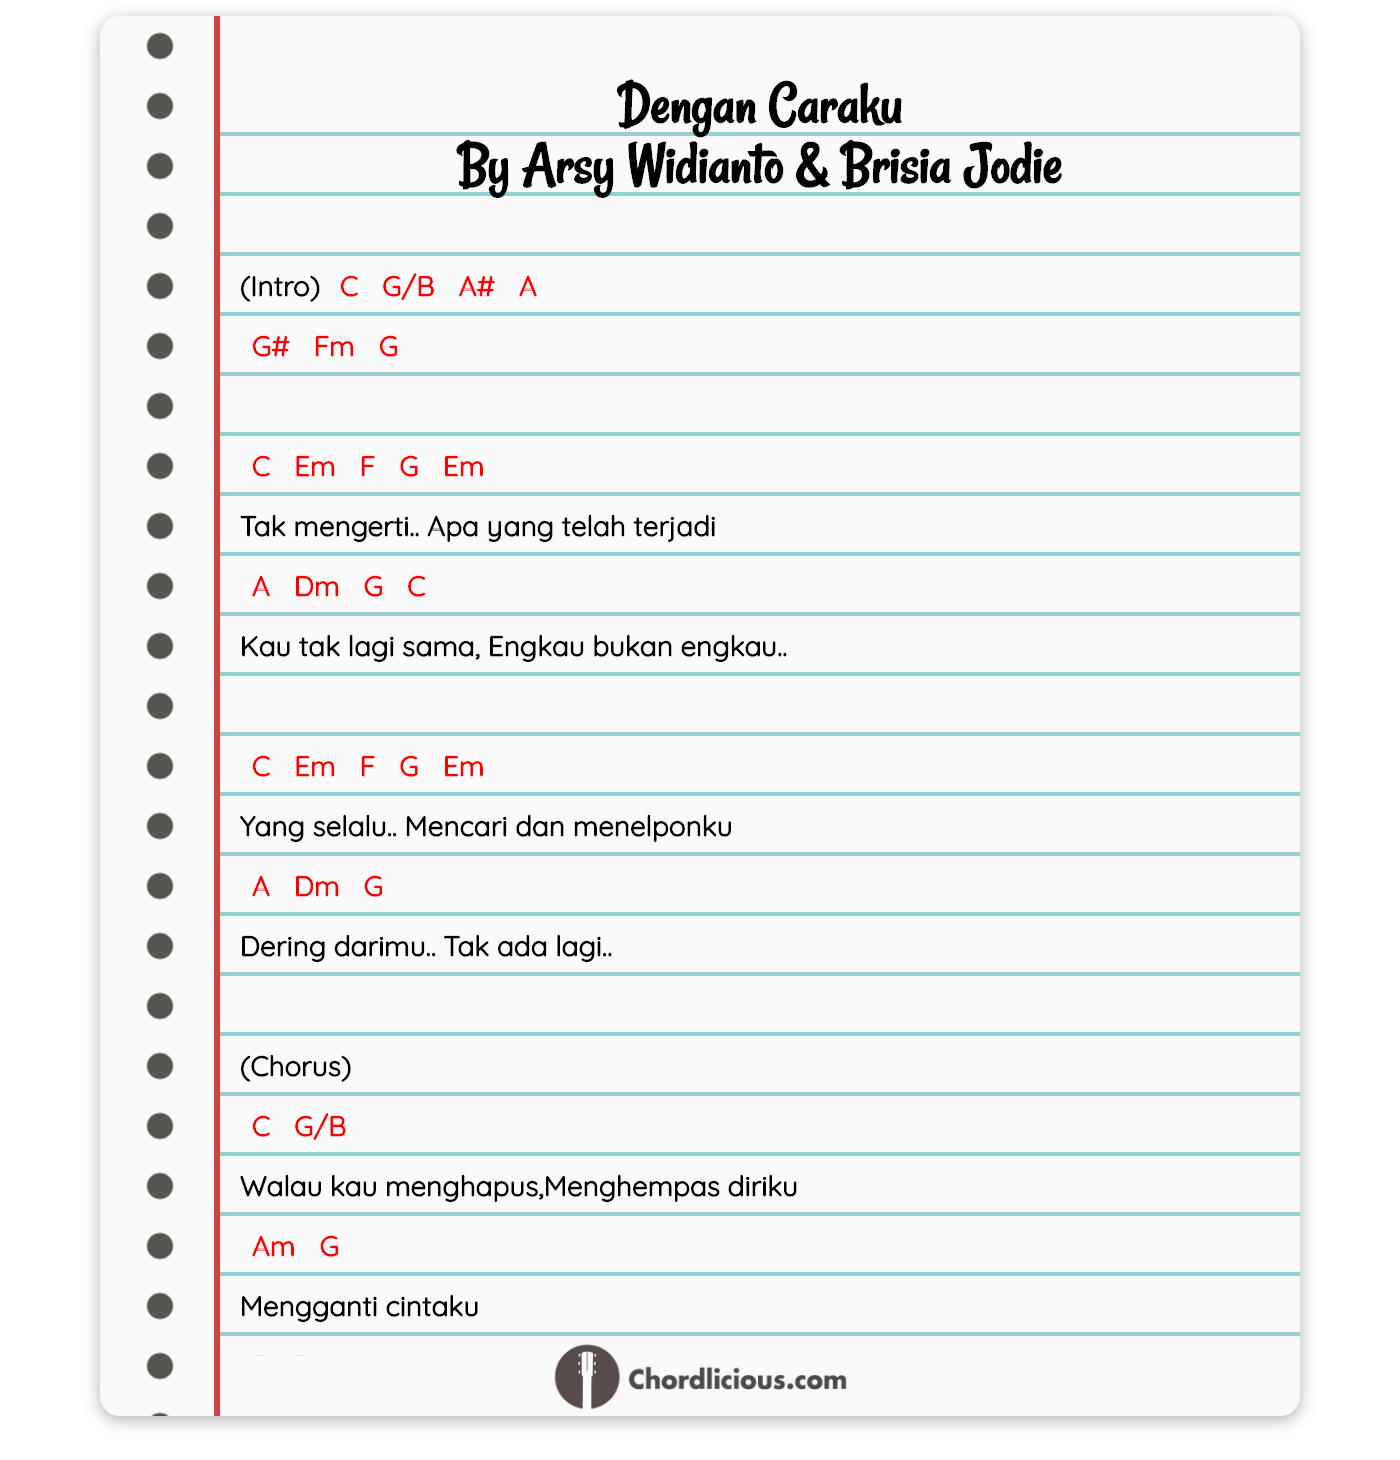 Dengan Caraku
By Arsy Widianto & Brisia Jodie
(Intro) C G/B A# A
G# Fm G
C Em F G Em
Tak mengerti.. Apa yang telah terjadi
A Dm G C
Kau tak lagi sama, Engkau bukan engkau..
C Em F G Em
Yang selalu.. Mencari dan menelponku
A Dm G
Dering darimu.. Tak ada lagi..
(Chorus)
C G/B
Walau kau menghapus,Menghempas diriku
Am G
Mengganti cintaku
Chordlicious.com